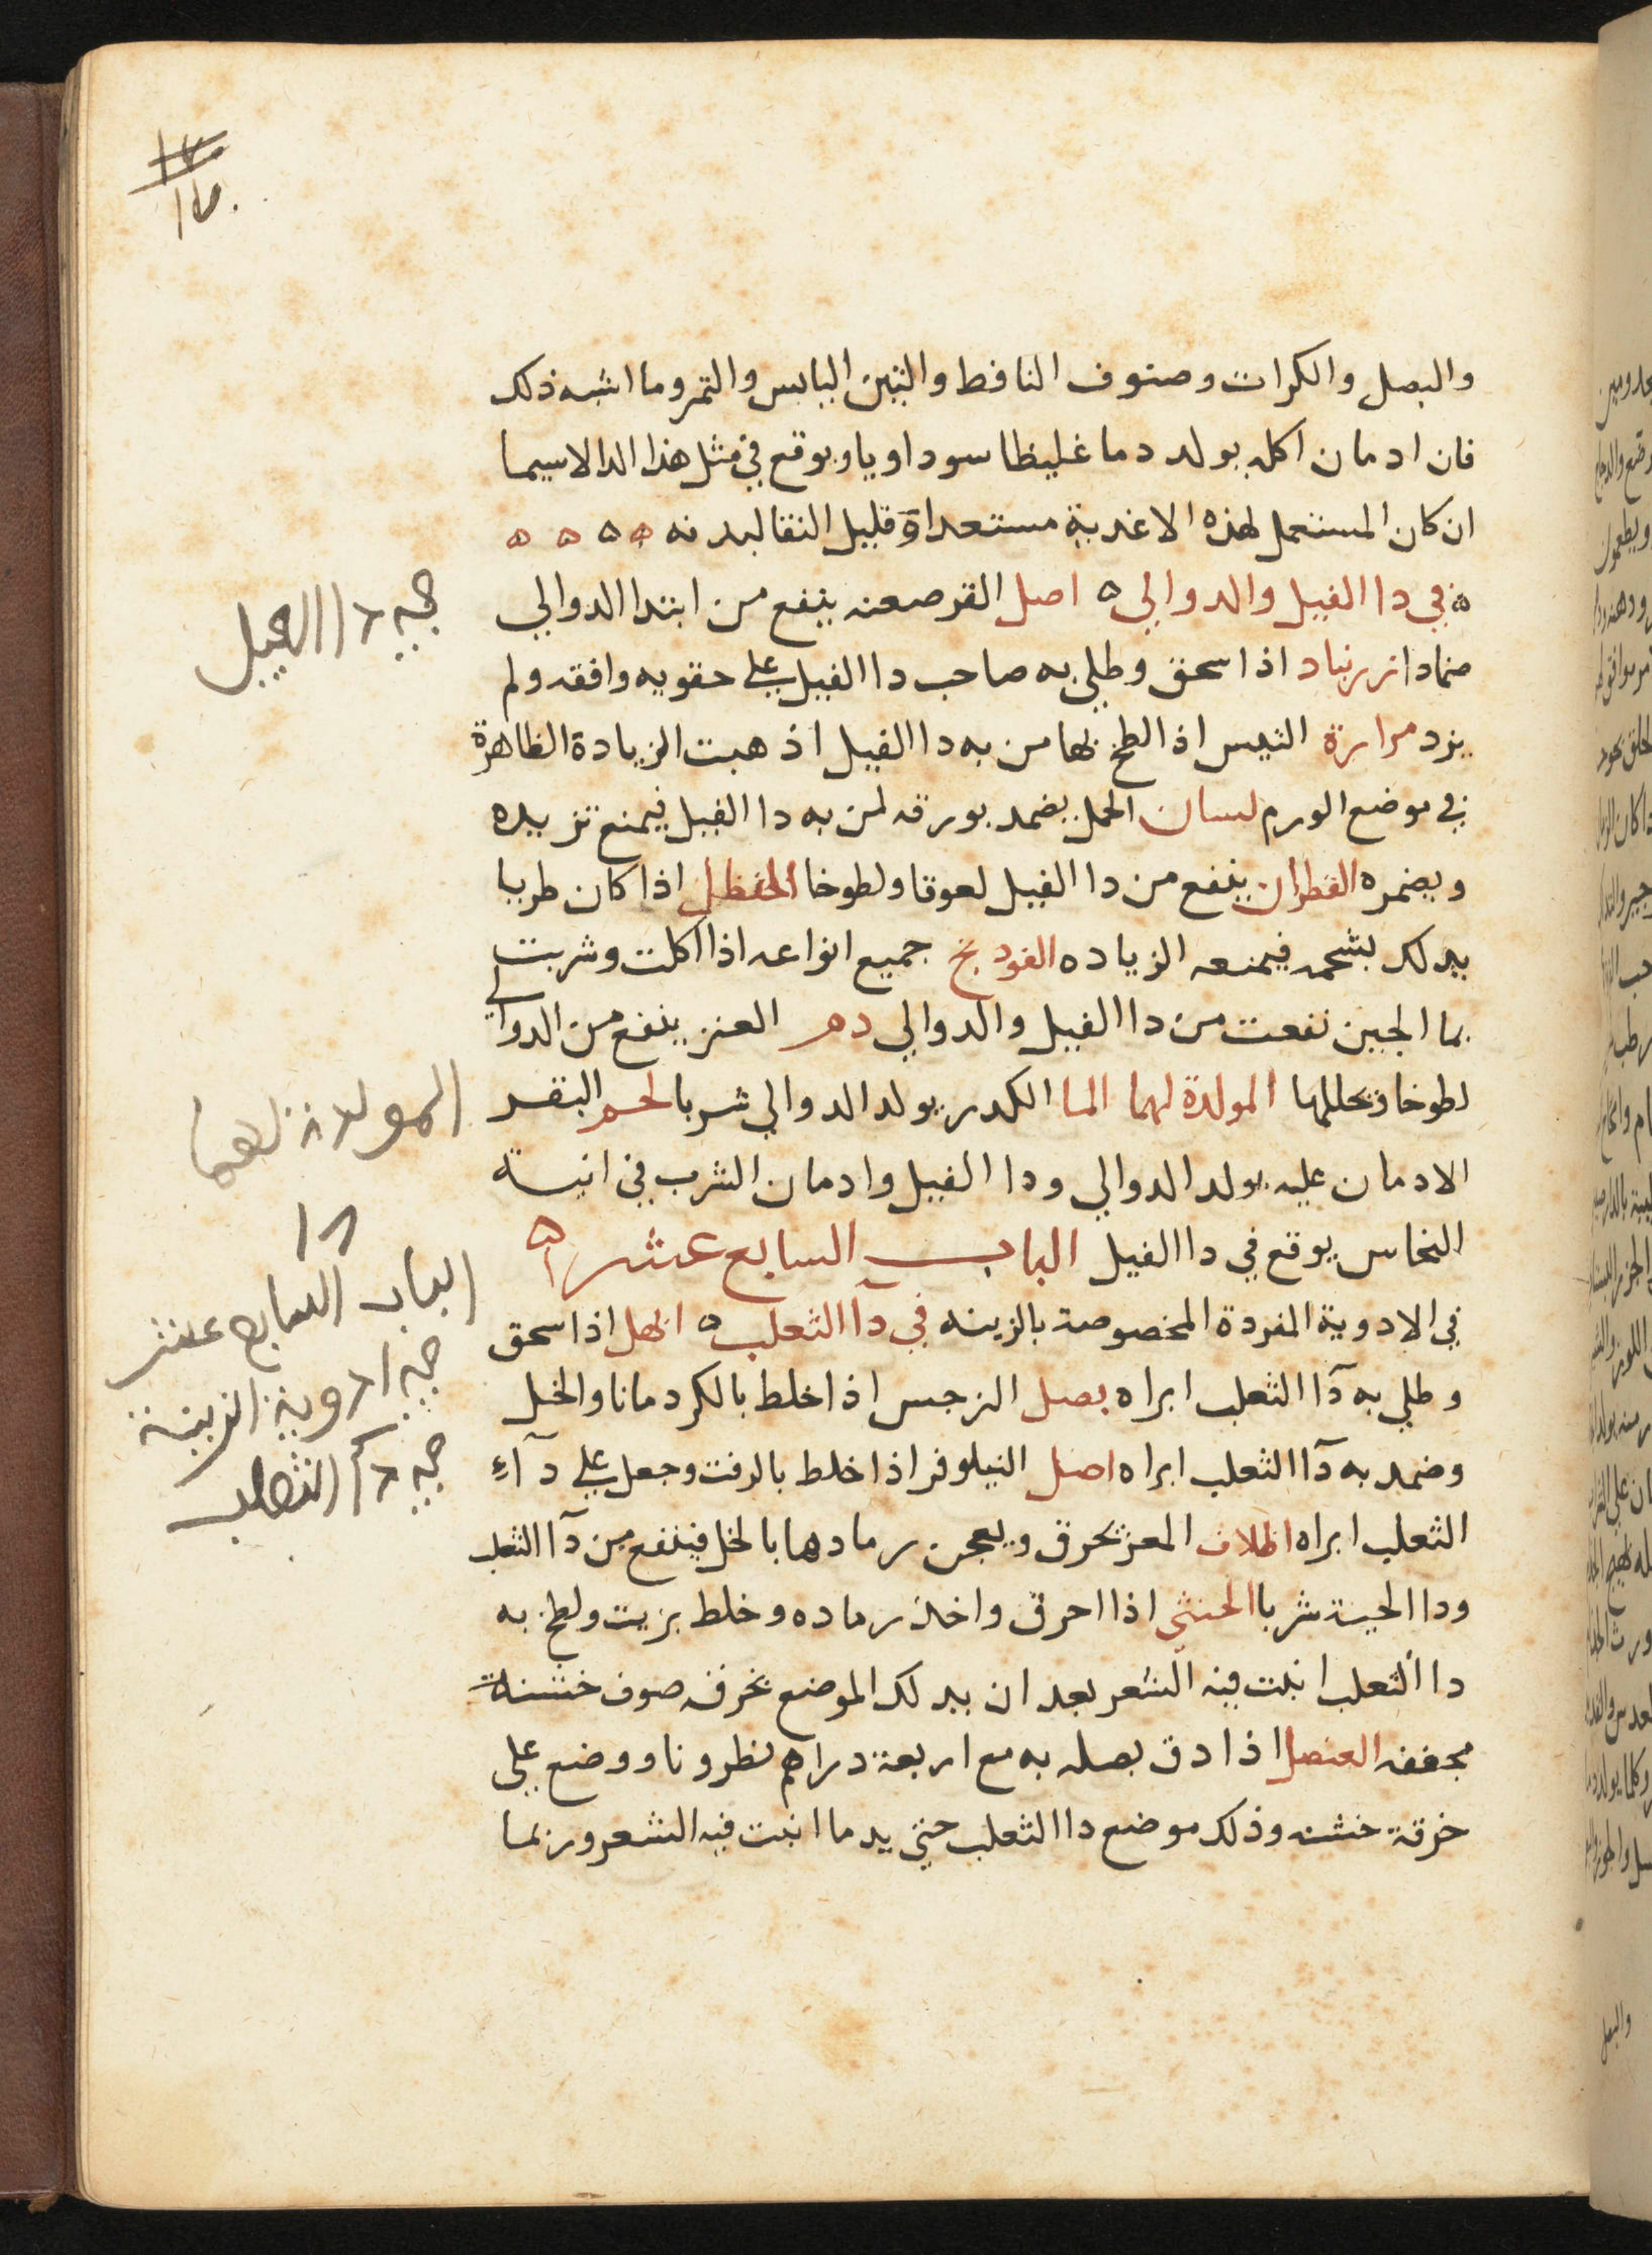 والبصل والكراث وصنوف النافط والتين اليابس والتمر وما اشبه ذلك
فان ادمان اكله يولد دما غليظا سوداويا ويوقع في مثل هذا الدا لاسيما
ان كان المستعمل لهذه الاغدية مستعدا قليل النقا لبدنه
في دا الفيل والدوالي اصل القرصعنه ينفع من ابتدا الدوالي
ضمادا زرنباد اذا سحق وطلي به صاحب دا الفيل على حقويه وافقه ولم
يزد مرارة التيس اذا لطخ بها من به دا الفيل اذهبت الزيادة الظاهرة
في موضع الورم لسان الحمل يضمد بورقه لمن به دا الفيل فيمنع تزيده
ويضمره القطران ينفع من دا الفيل لعوقا ولطوخا الحنظل اذا كان طريا
يدلك بشحمه فيمنعه الزياده الفودنج جميع انواعه اذا اكلت وشربت
بما الجبن نفعت من دا الفيل والدوالي دم العنز ينفع من الدوالي
لطوخا فيحللها المولدة لهما الما الكدر يولد الدوالي شربا لحم البقر
الادمان عليه يولد الدوالي ودا الفيل وادمان الشرب في انية
النحاس يوقع في دا الفيل الباب السابع عشر
في الادوية المفردة المخصوصة بالزينه في دآ الثعلب ابهل اذا سحق
وطلي به دآ الثعلب ابراه بصل النرجس اذا خلط بالكردمانا والخل
وضمد به دآ الثعلب ابراه اصل النيلوفر اذا خلط بالزفت وجعل على دآء
الثعلب ابراه اظلاف المعز تحرق ويعجن رمادها بالخل فينفع من دآ الثعلب
ودا الحية شربا الخنثى اذا احرق واخذ رماده وخلط بزيت ولطخ به
دا الثعلب انبت فيه الشعر بعد ان يدلك الموضع بخرقه صوف خشنة
مجففه العنصل اذا دق بصله به مع اربعة دراهم نطرونا ووضع على
خرقة خشنه وذلك موضع دا الثعلب حتى يدما انبت فيه الشعر وربما
في دا الفيل
المولدة لهما
١٨
الباب السابع عشر
في ادوية الزينة
في دآ الثعلب